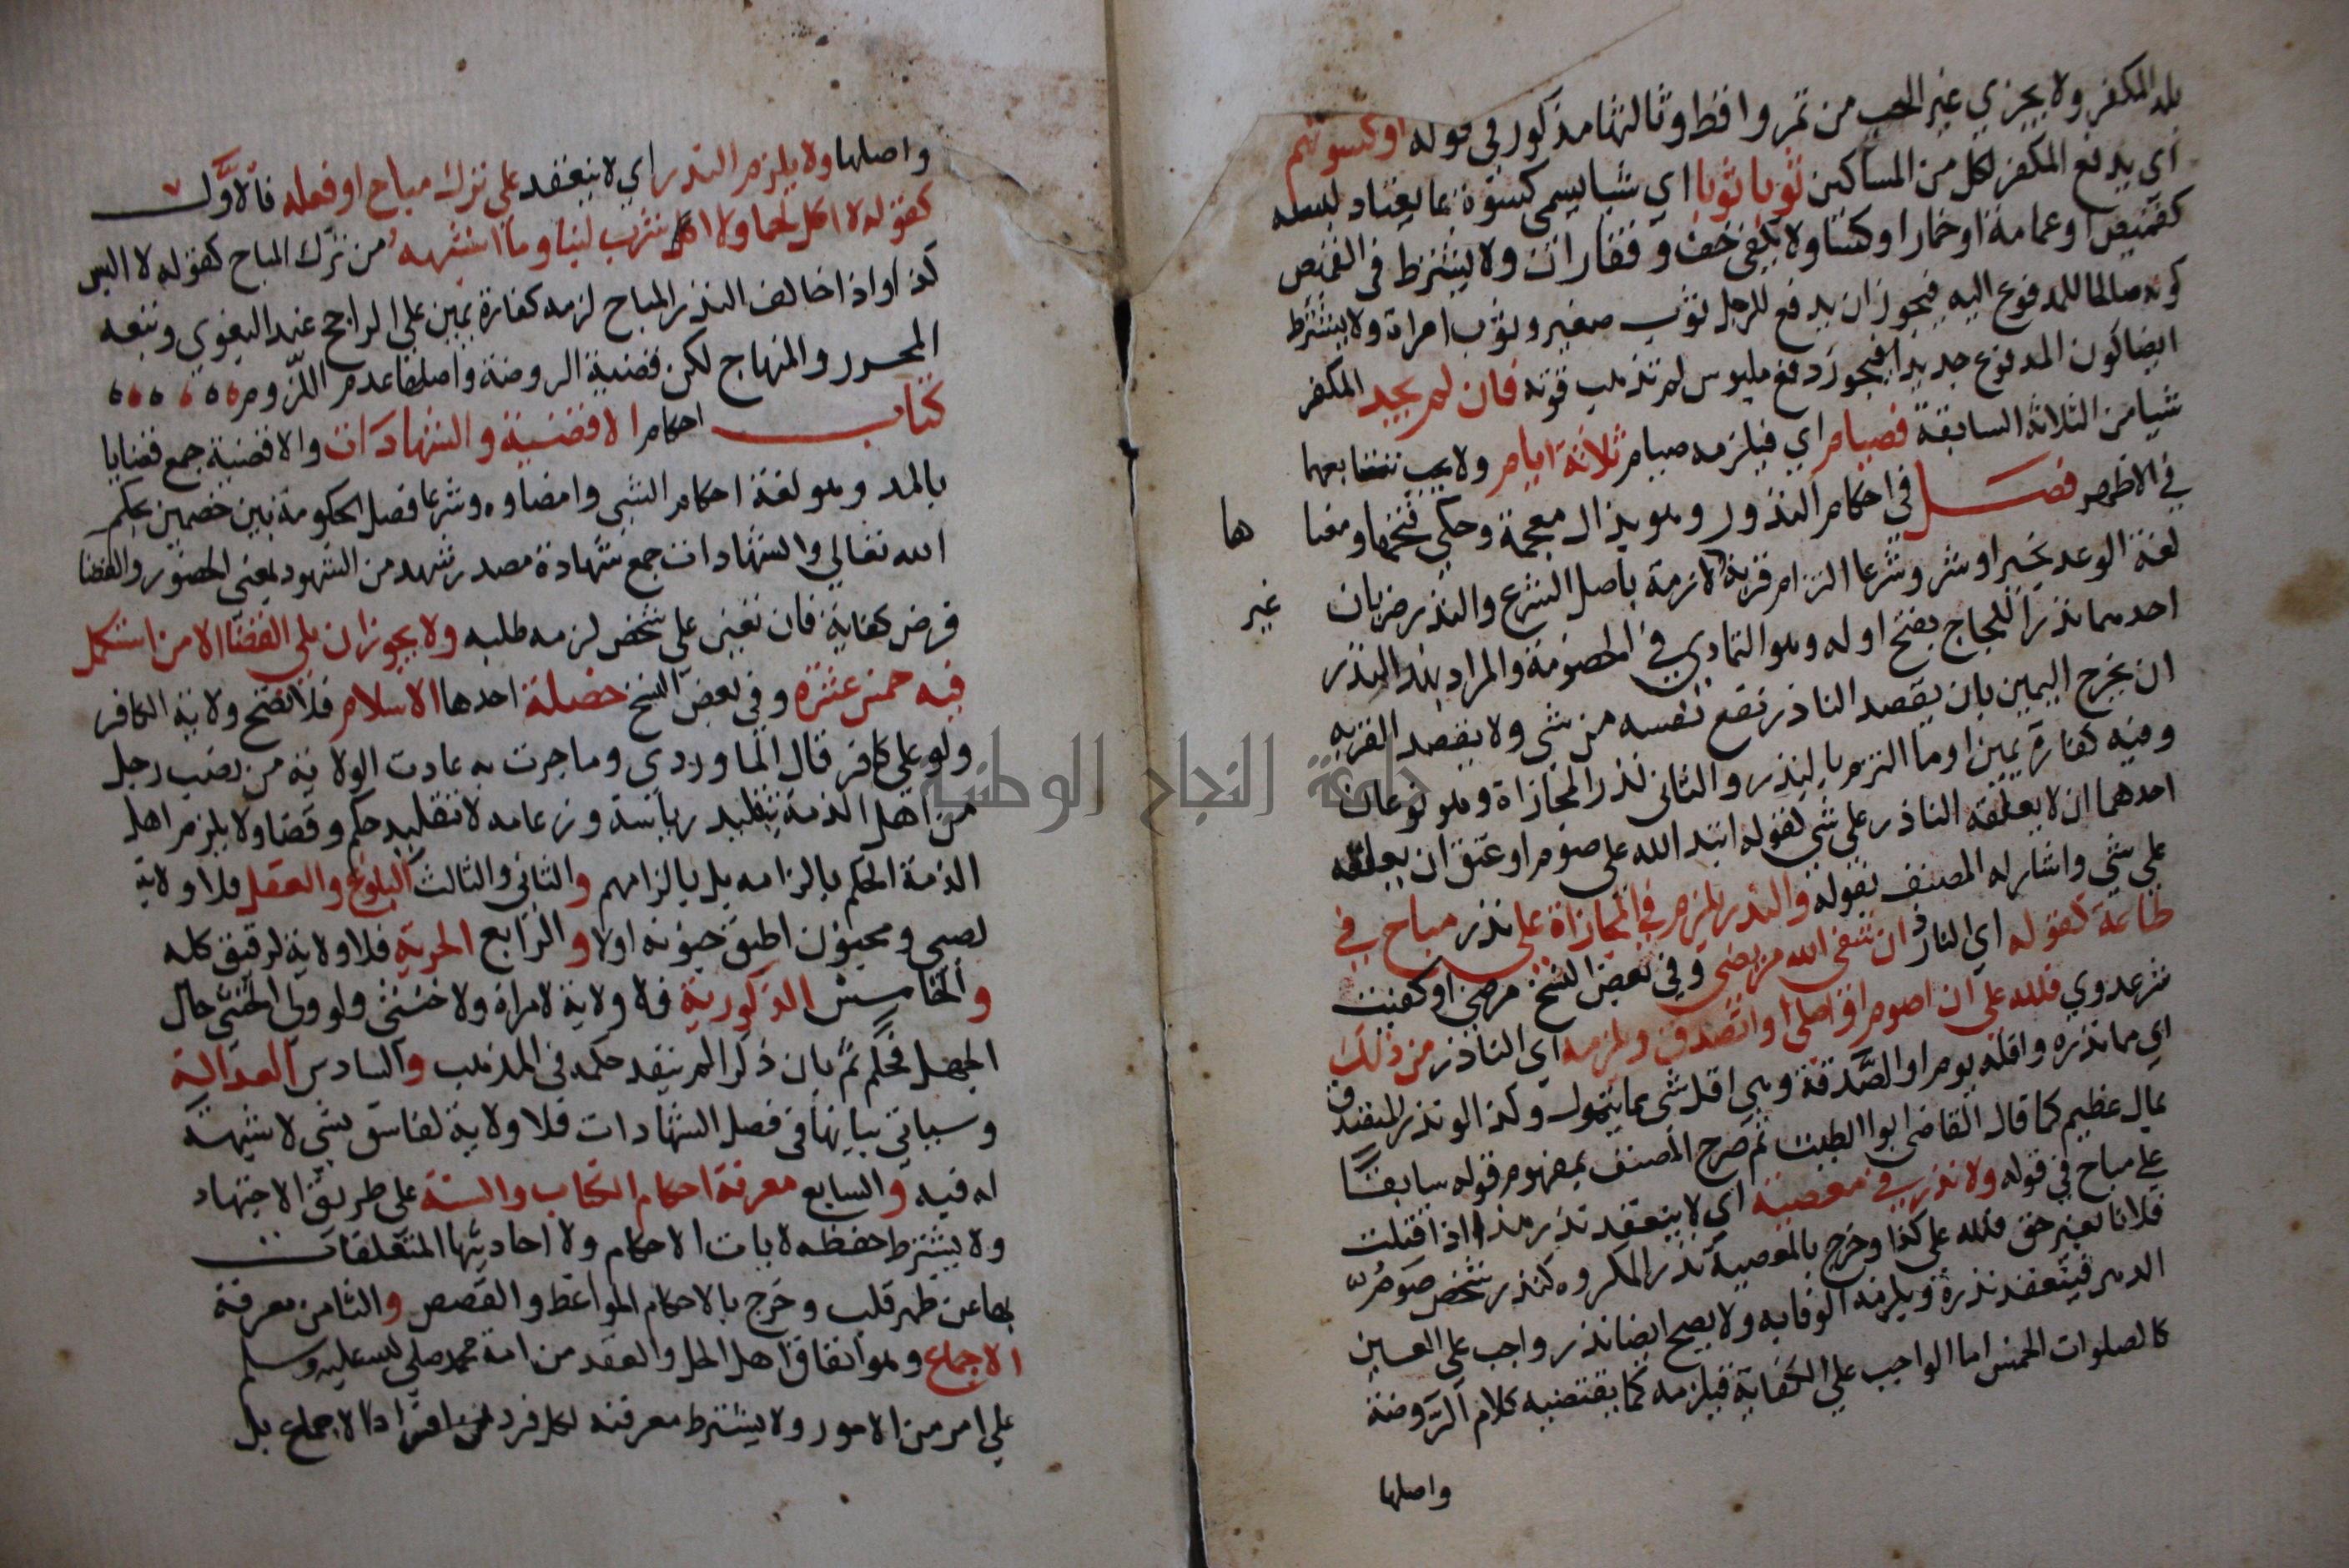 بلد المكفر ولا يجزي غير الحب من تمر واقط وثالثها مذكور في قوله او كسوتهم
اي يدفع المكفر لكل من المساكين ثوبا ثوبا اي شيا يسمى كسوة مما يعتاد لبسه
كقميص او عمامة او خمار او كسا ولا يكفي خف وقفازات ولا يشترط في القميص
كونه صالحا للمدفوع اليه فيجوز ان يدفع للرجل ثوب صغير وثوب امراة ولا يشترط
ايضا كون المدفوع جديدا فيجوز دفع ملبوس لم تذهب قوته فان لم يجد المكفر
شيا من الثلاثة السابقة فصيام اي فيلزمه صيام ثلاثة ايام ولا يجب تتابعها
في الاظهر فصل في احكام النذور وهو بذال معجمة وحكي فتحها ومعنا ها
لغة الوعد بخير او شر وشرعا التزام قربة لازمة باصل الشرع والنذر ضربان غير
احدهما نذر اللجاج بفتح اوله وهو التمادي في الخصومة والمراد بهذا النذر
ان يخرج اليمين بان يقصد الناذر نفسه من شي ولا يقصد القربه
وفيه كفارة يمين او ما التزم بالنذر والثاني نذر المجازاة وهو نوعان
احدهما ان لا يعلقه الناذر على شي كقوله ابتدا لله علي صوم او عتق ان يعلقه
على شي واشار له المصنف بقوله والنذر يلزم في المجازاة على نذر مباح في
طاعة كقوله اي الناذر ان شفى الله مريضي وفي بعض النسخ مرضي او كفيت
شر عدوي فلله علي ان اصوم او اصلي او اتصدق ويلزمه اي الناذر من ذلك
اي مما نذره واقله يوم او الصدقة وهي اقل شي مما يتمول وكذا لو نذر التصدق
بمال عظيم كما قال القاضي ابوا الطيب ثم صرح المصنف بمفهوم قوله سابقا
على مباح في قوله ولا نذر في معصية اي لا ينعقد نذرها اذا قتلت
فلانا بغير حق فلله علي كذا وخرج بالمعصية نذر المكروه كنذر شخص صوم
الدهر فينعقد نذره ويلزمه الوفا به ولا يصح ايضا نذر واجب على العين
كالصلوات الخمس اما الواجب على الكفاية فيلزمه كما يقتضيه كلام الروضة
واصلها
واصلها ولا يلزم النذر اي لا ينعقد على ترك مباح او فعله فالاول
كقوله لا اكل لحما ولا اشرب لبنا وما اشبهه من ترك المباح كقوله لا البس
كذا واذا خالف النذر المباح لزمه كفارة يمين على الراجح عند البغوي وتبعه
المحرر والمنهاج لكن قضية الروضة واصلها عدم اللزوم
كتاب احكام الاقضية والشهادات والاقضية جمع قضايا
بالمد وهو لغة احكام الشي وامضاوه وشرعا فصل الحكومة بين خصمين بحكم
الله تعالى والشهادات جمع شهادة مصدر شهد من الشهود بمعنى الحضور والقضا
فرض كفاية فان تعين على شخص لزمه طلبه ولا يجوز ان يلي القضا الا من استكمل
فيه خمس عشرة وفي بعض النسخ خصلة احدها الاسلام فلا تصح ولاية الكافر
ولو على كافر قال الماوردي وما جرت به عادت الولاية من نصب رجل
من اهل الذمة بتقليد رياسة وزعامه لا تقليد حكم وقضا ولا يلزم اهل
الذمة الحكم بالزامه بل بالزامهم والثاني والثالث البلوغ والعقل فلا ولاية
لصبي ومجنون اطبق جنونه اولا والرابع الحرية فلا ولاية لرقيق كله
والخامس الذكورية فلا ولاية لامراة ولا خنثى ولو ولي الخنثى حال
الجهل فحكم ثم بان ذكرا لم ينفذ حكمه في المذهب والسادس العدالة
وسياتي بيانها في فصل الشهادات فلا ولاية لفاسق بشي لا شبهة
له فيه والسابع معرفة احكام الكتاب والسنة على طريق الاجتهاد
ولا يشترط حفظه لايات الاحكام ولا احاديثها المتعلقات
بها عن ظهر قلب وخرج بالاحكام المواعظ والقصص والثامن معرفة
الاجماع وهو اتفاق اهل الحل والعقد من امة محمد صلى الله عليه وسلم
على امر من الامور ولا يشترط معرفته لكل فرد من افراد الاجماع بل
جامعة النجاح الوطنية